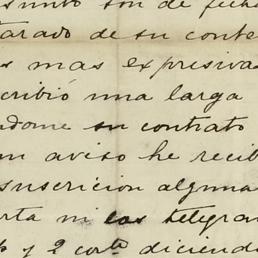 sunto son de fecha
tarado de su conte
s mas expresiva
cribió una larga
ndome su contrato
n aviso he recib
suscricion alguna
rta ni los telegra
y 2 corte diciend